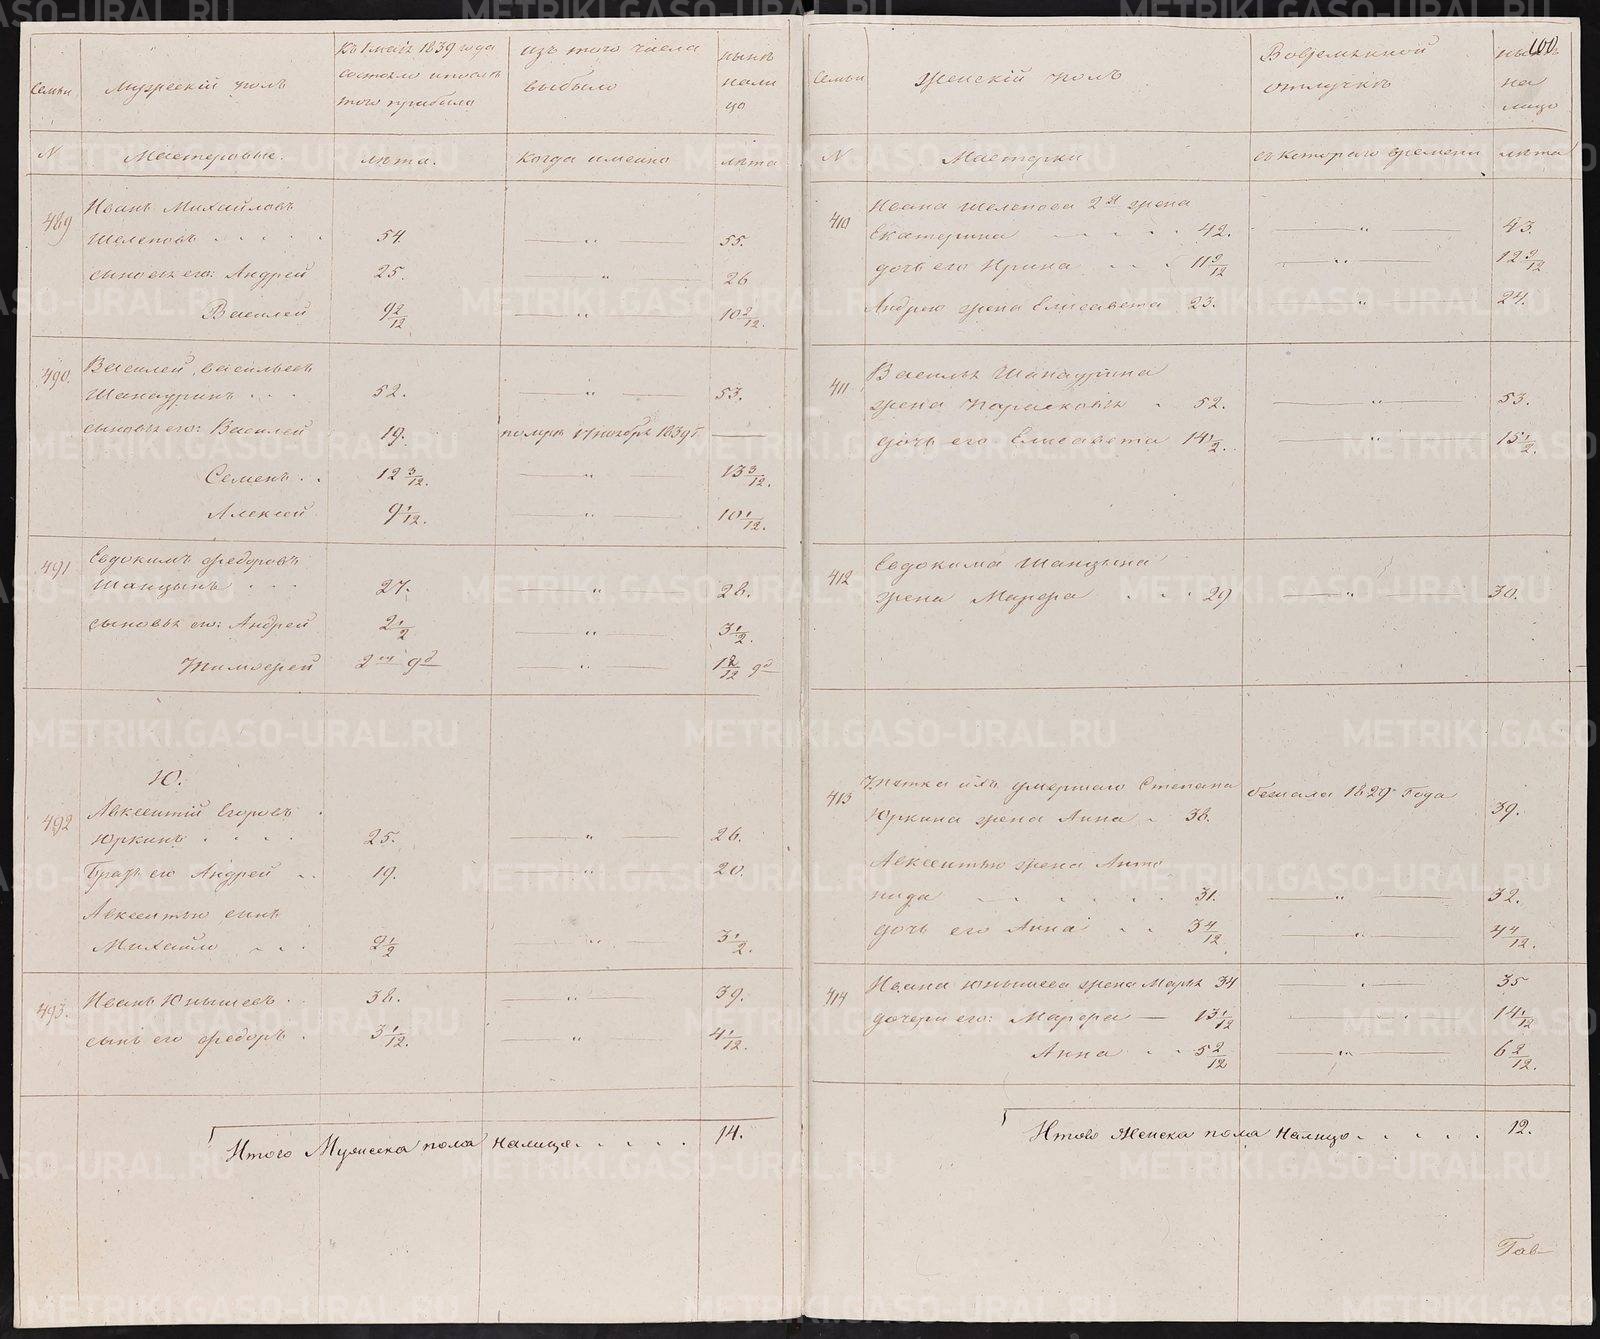 Семьи
Мужескій полъ
Къ 1 маія 1839 года
состояло и послѣ
того прибыло
изъ того числа
выбыло
нынѣ
нали
цо
N
Мастеровые.
лѣта.
когда именно
лѣта
489
Иванъ Михайловъ
Шелеповъ . . . . . 54. — " — 55.
сыновья его: Андрей 25. — " — 26
Василей 9 2/12 — " — 10 2/12.
490.
Василей Васильевъ
Шанауринъ . . . 52. — " — 53.
сыновья его: Василей 19. помре 17 ноября 1839 г —
Семенъ . . 12 3/12. — " — 13 3/12.
Алексей 9 1/12. — " — 10 1/12.
491
Евдокимъ Федоровъ
Шанцынъ . . . 27. — " — 28.
сыновья его: Андрей 2 1/2 — " — 3 1/2.
Тимофей — " —
Ю.
492
Авксентій Егоровъ .
Юркинъ . . . . 25. — " — 26.
Братъ его Андрей . . 19. — " — 20.
Авксентью сынъ
Михайло . . . 2 1/2 — " — 3 1/2.
493.
Иванъ Юнышевъ . 38. — " — 39.
сынъ его Федоръ . 3 1/12. — " — 4 1/12.
Итого Мужеска пола налицо . . . . . 14.
100
Семьи
Женскій полъ
Вовремянной
отлучкѣ
на
лицо
N
Мастерки
съ котораго времени
лѣта
410
Ивана Шелепова 2я жена
Екатерина — . . . . 42. — " — 43.
дочь его Ирина . . . 11 9/12 — " — 12 9/12
Андрею жена Елисавета 23. — " — 24.
411
Василья Шанаурина
жена Парасковья . 52. — " — 53.
дочь его Елисавета 14 1/2. — " — 15 1/2.
412
Евдокима Шанцына
жена Марфа . . . 29 — " — 30.
413
Тетка ихъ умершаго Степана
Юркина жена Анна . 38. бежала 1829 Года 39.
Авксентью жена Анто
нида — . . . . . 31. — " — 32.
дочь его Анна . . 3 4/12 — " — 4 4/12.
414
Ивана Юнышева жена Марья 34 — " — 35
дочери его: Марфа — 13 1/12 — " — 14 1/12
Анна . . 5 2/12 — " — 6 2/12.
Итого Женска пола налицо . . . . . 12.
Гав-